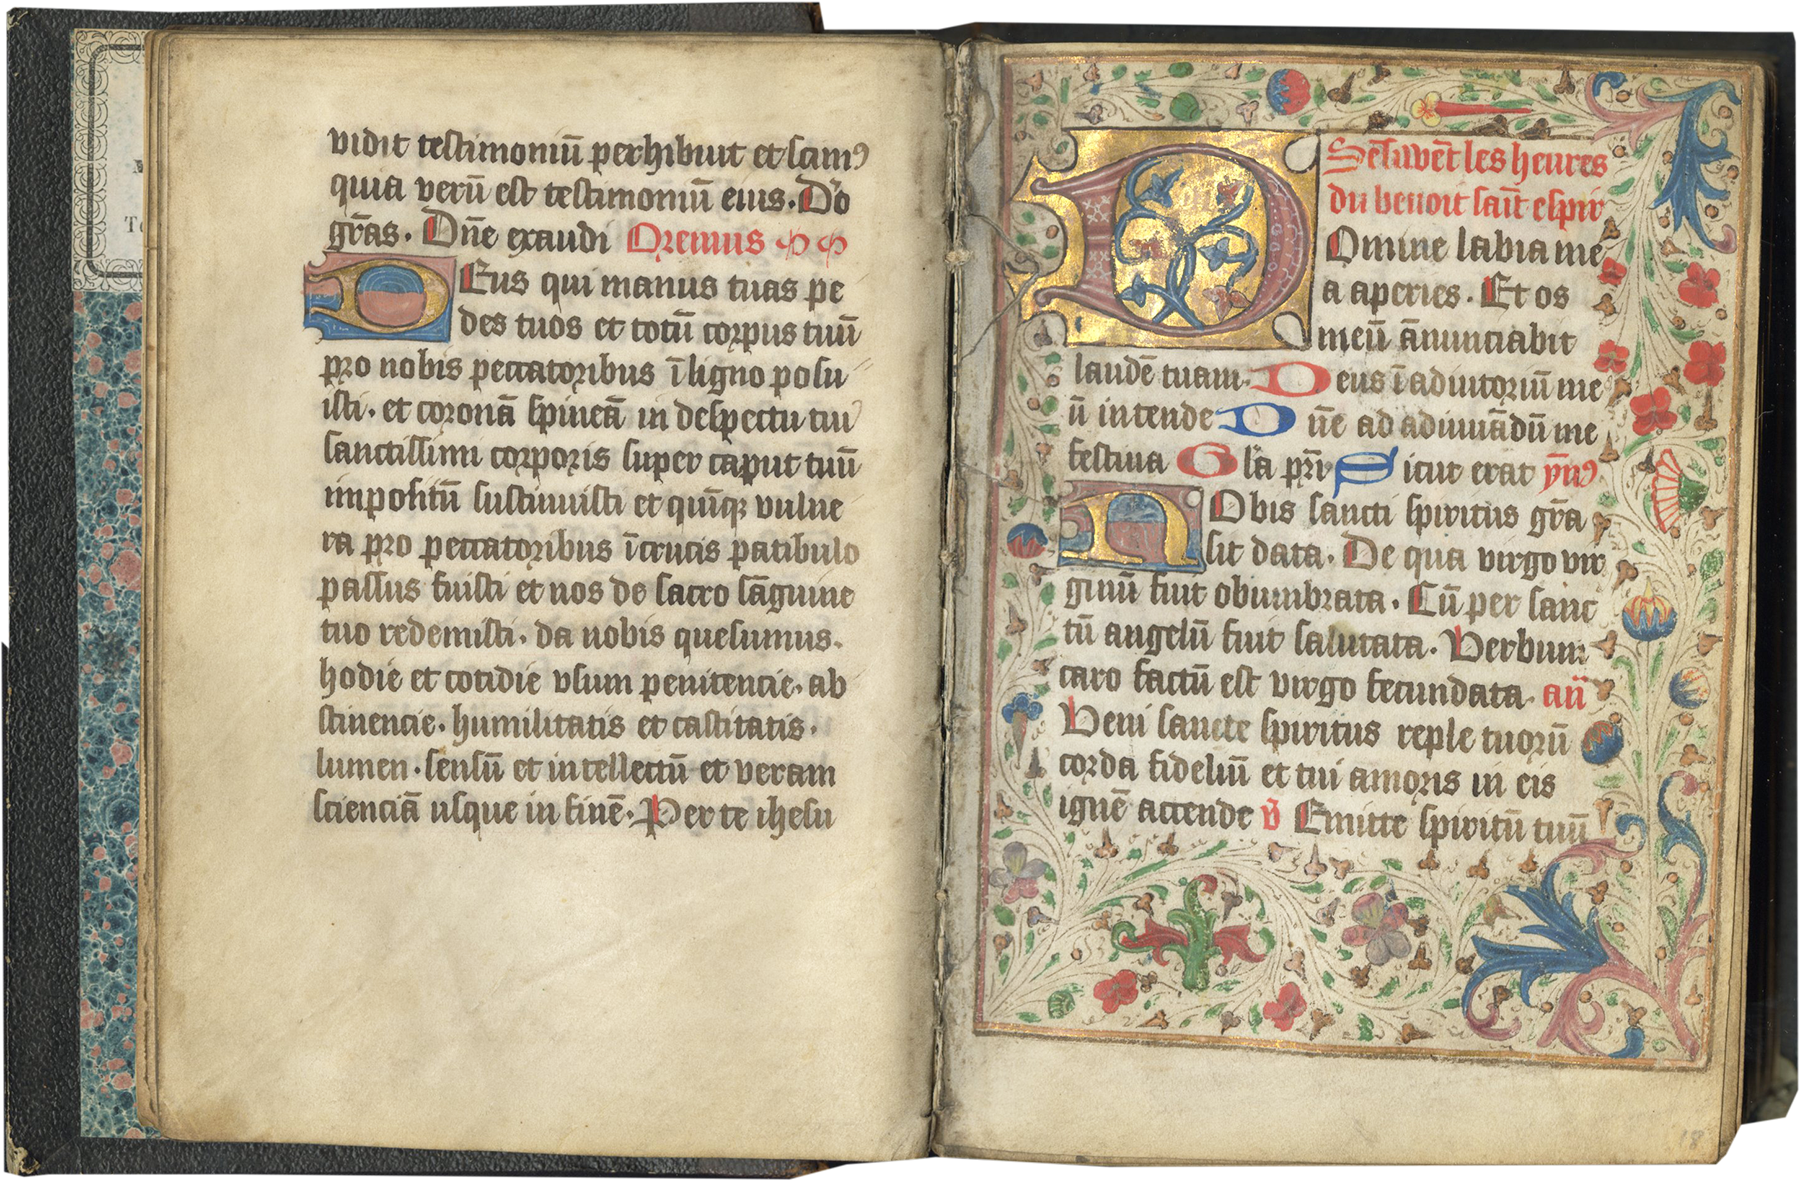 vidit testimoniū perhibuit et scimꝰ
quia verū est testimoniū eius. Dō
gr̄as. Dn̄e exaudi Oremus
Deus qui manus tuas pe
des tuos et totū corpus tuū
pro nobis peccatoribus ī ligno posu
isti. et coronā spineā in despectu tui
sanctissimi corporis super caput tuū
impositū sustinuisti et quīqꝫ vulne
ra pro peccatoribus ī crucis patibulo
passus fuisti et nos de sacro sāguine
tuo redemisti. da nobis quesumus.
hodie et cotidie usum penitencie. ab
stinencie. humilitatis et castitatis.
lumen. sensū et intellectū et veram
scienciā usque in finē. Per te ihesu
Sēsuvēt les heures
du benoit saīt espir
Domine labia me
a aperies. Et os
meū ānunciabit
laudē tuam. Deus ī adiutoriū me
ū intende Dn̄e ad adiuuādū me
festina Gl'a pr̄i Sicut erat ym̄ꝰ
Nobis sancti spiritus gr̄a
sit data. De qua virgo vir
ginū fuit obumbrata. Cū per sanc
tū angelū fuit salutata. Verbum
caro factū est virgo fecundata. an̄
Veni sancte spiritus reple tuorū
corda fideliū et tui amoris in eis
ignē accende v̄ Emitte spiritū tuū
18